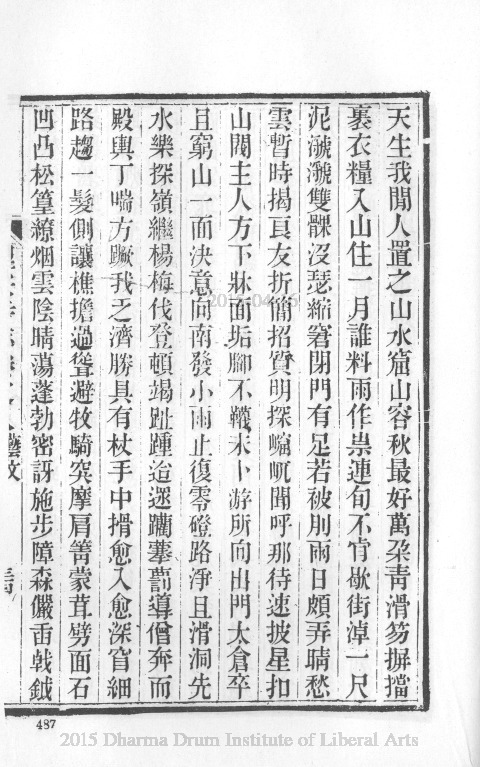 天生我閒人置之山水窟山容秋最好萬朶靑滑笏摒擋
裹衣糧入山住一月誰料雨作祟連旬不肯歇街淖一尺
泥㶑㶑雙髁沒瑟縮窘閉門有足若被刖雨日頗弄晴愁
雲暫時揭良友折簡招質明探𡾊屼聞呼那待速披星扣
山閣主人方下牀面垢腳不韈未卜游所向出門太倉卒
且窮山一面決意向南發小雨止復零磴路淨且滑洞先
水樂探嶺繼楊梅伐登頓竭趾踵迨遝躪蹇罰導僧奔而
殿輿丁喘方蹶我乏濟勝具有杖手中搰愈入愈深窅細
路趨一髮側讓樵擔過聳避牧騎突摩肩箐蒙茸劈面石
凹凸松篁繚烟雲陰晴蕩蓬勃密訝施步障森儼臿戟鉞
藝文
487
2015 Dharma Drum Institute of Liberal Arts